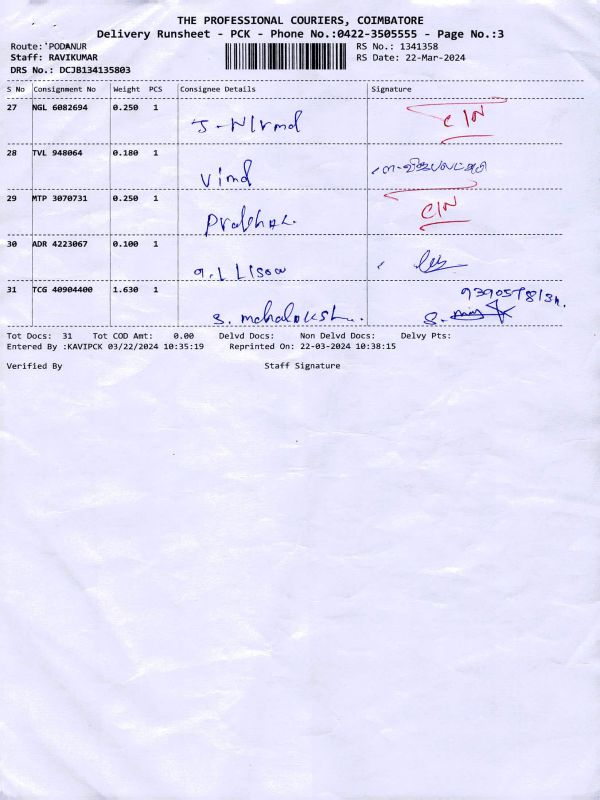 THE PROFESSIONAL COURIERS, COIMBATORE
Delivery Runsheet - PCK - Phone No.:0422-3505555 - Page No.:3
Route: PODANUR RS No.: 1341358
Staff: RAVIKUMAR RS Date: 22-Mar-2024
DRS No.: DCJB134135803
S No Consignment No Weight PCS Consignee Details Signature
27 NGL 6082694 0.250 1
C/N
28 TVL 948064 0.180 1
Vimd
29 MTP 3070731 0.250 1
C/N
30 ADR 4223067 0.100 1
31 TCG 40904400 1.630 1
S.
Tot Docs: 31 Tot COD Amt: 0.00 Delvd Docs: Non Delvd Docs: Delvy Pts:
Entered By :KAVIPCK 03/22/2024 10:35:19 Reprinted On: 22-03-2024 10:38:15
Verified By Staff Signature